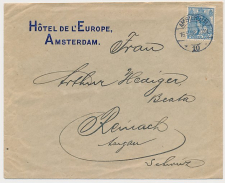 HÔTEL DE L'EUROPE,
AMSTERDAM.
Frau
Arthur Hediger
Beata
Reinach
Aargau
Schweiz